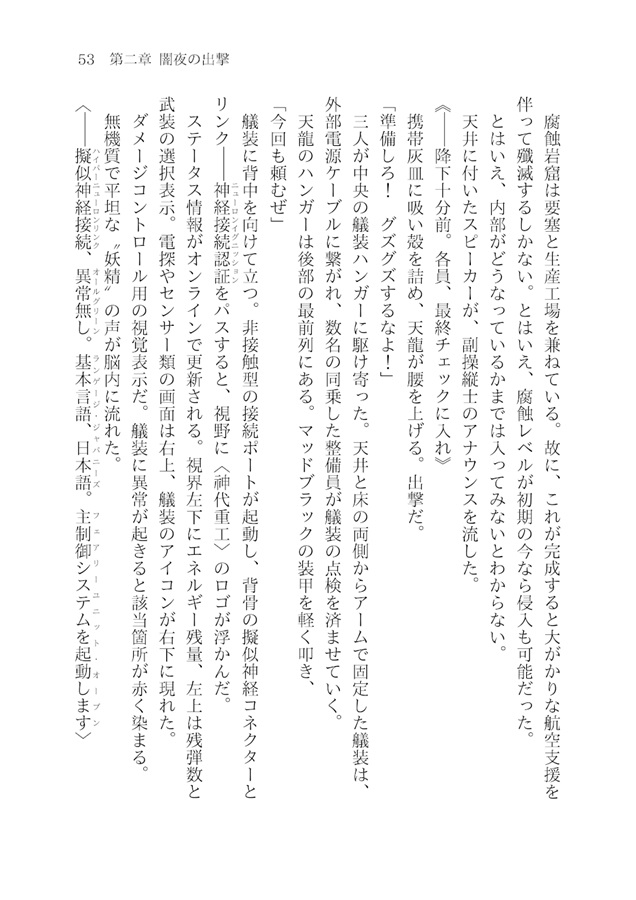 53　第二章 闇夜の出撃
　腐蝕岩窟は要塞と生産工場を兼ねている。故に、これが完成すると大がかりな航空支援を
伴って殲滅するしかない。とはいえ、腐蝕レベルが初期の今なら侵入も可能だった。
　とはいえ、内部がどうなっているかまでは入ってみないとわからない。
　天井に付いたスピーカーが、副操縦士のアナウンスを流した。
《――降下十分前。各員、最終チェックに入れ》
　携帯灰皿に吸い殻を詰め、天龍が腰を上げる。出撃だ。
「準備しろ！　グズグズするなよ！」
　三人が中央の艤装ハンガーに駆け寄った。天井と床の両側からアームで固定した艤装は、
外部電源ケーブルに繋がれ、数名の同乗した整備員が艤装の点検を済ませていく。
　天龍のハンガーは後部の最前列にある。マッドブラックの装甲を軽く叩き、
「今回も頼むぜ」
　艤装に背中を向けて立つ。非接触型の接続ポートが起動し、背骨の擬似神経コネクターと
リンク――神経接続認証をパスすると、視野に〈神代重工〉のロゴが浮かんだ。
ニューロンイグニッション
　ステータス情報がオンラインで更新される。視界左下にエネルギー残量、左上は残弾数と
武装の選択表示。電探やセンサー類の画面は右上、艤装のアイコンが右下に現れた。
　ダメージコントロール用の視覚表示だ。艤装に異常が起きると該当箇所が赤く染まる。
　無機質で平坦な〝妖精〟の声が脳内に流れた。
〈――擬似神経接続、異常無し。基本言語、日本語。主制御システムを起動します〉
ハイパーニューロンリンク　オールグリーン　ランゲージ・ジャパニーズ　フェアリーユニット・オープン